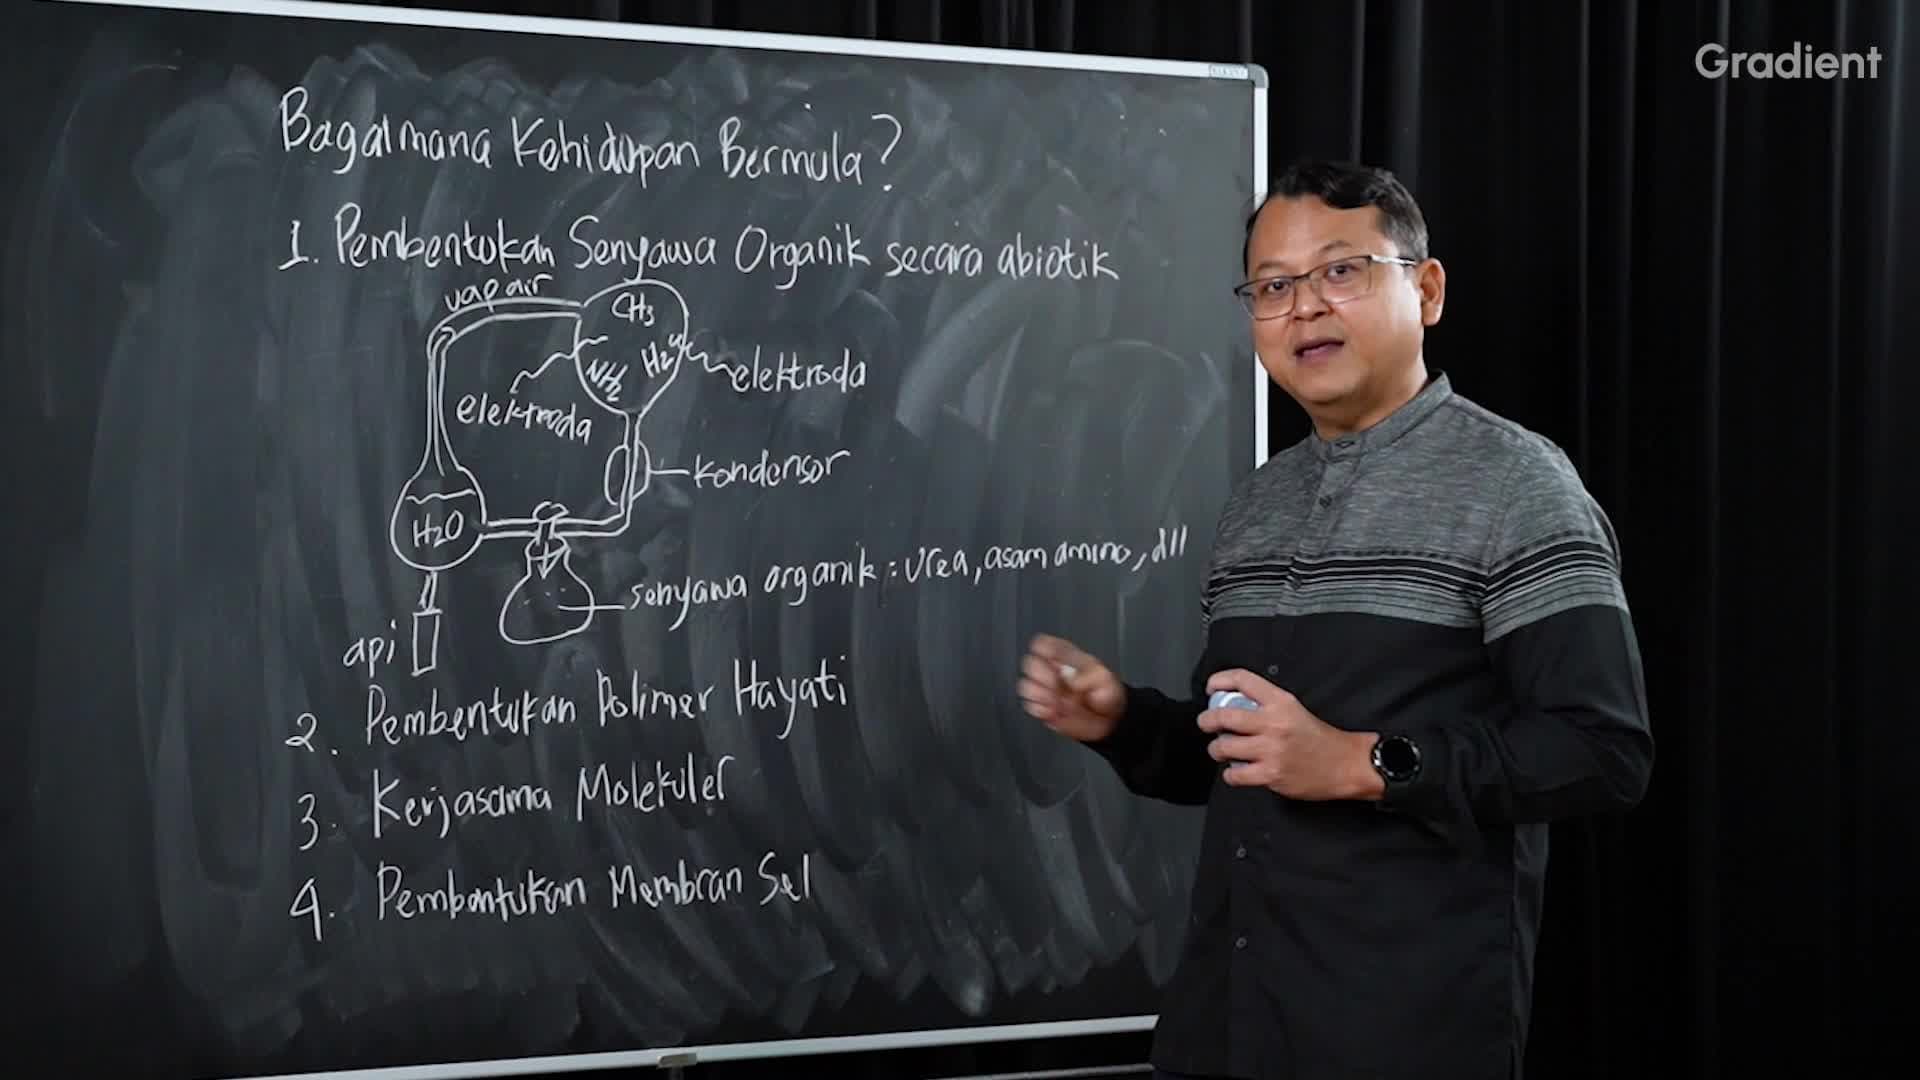 Gradient
Bagaimana Kehidupan Bermula?
1. Pembentukan Senyawa Organik secara abiotik
uap air
CH3
NH2
H2
elektroda
elektroda
kondensor
H2O
senyawa organik : urea, asam amino, dll
api
2. Pembentukan Polimer Hayati
3. Kerjasama Molekuler
4. Pembentukan Membran Sel